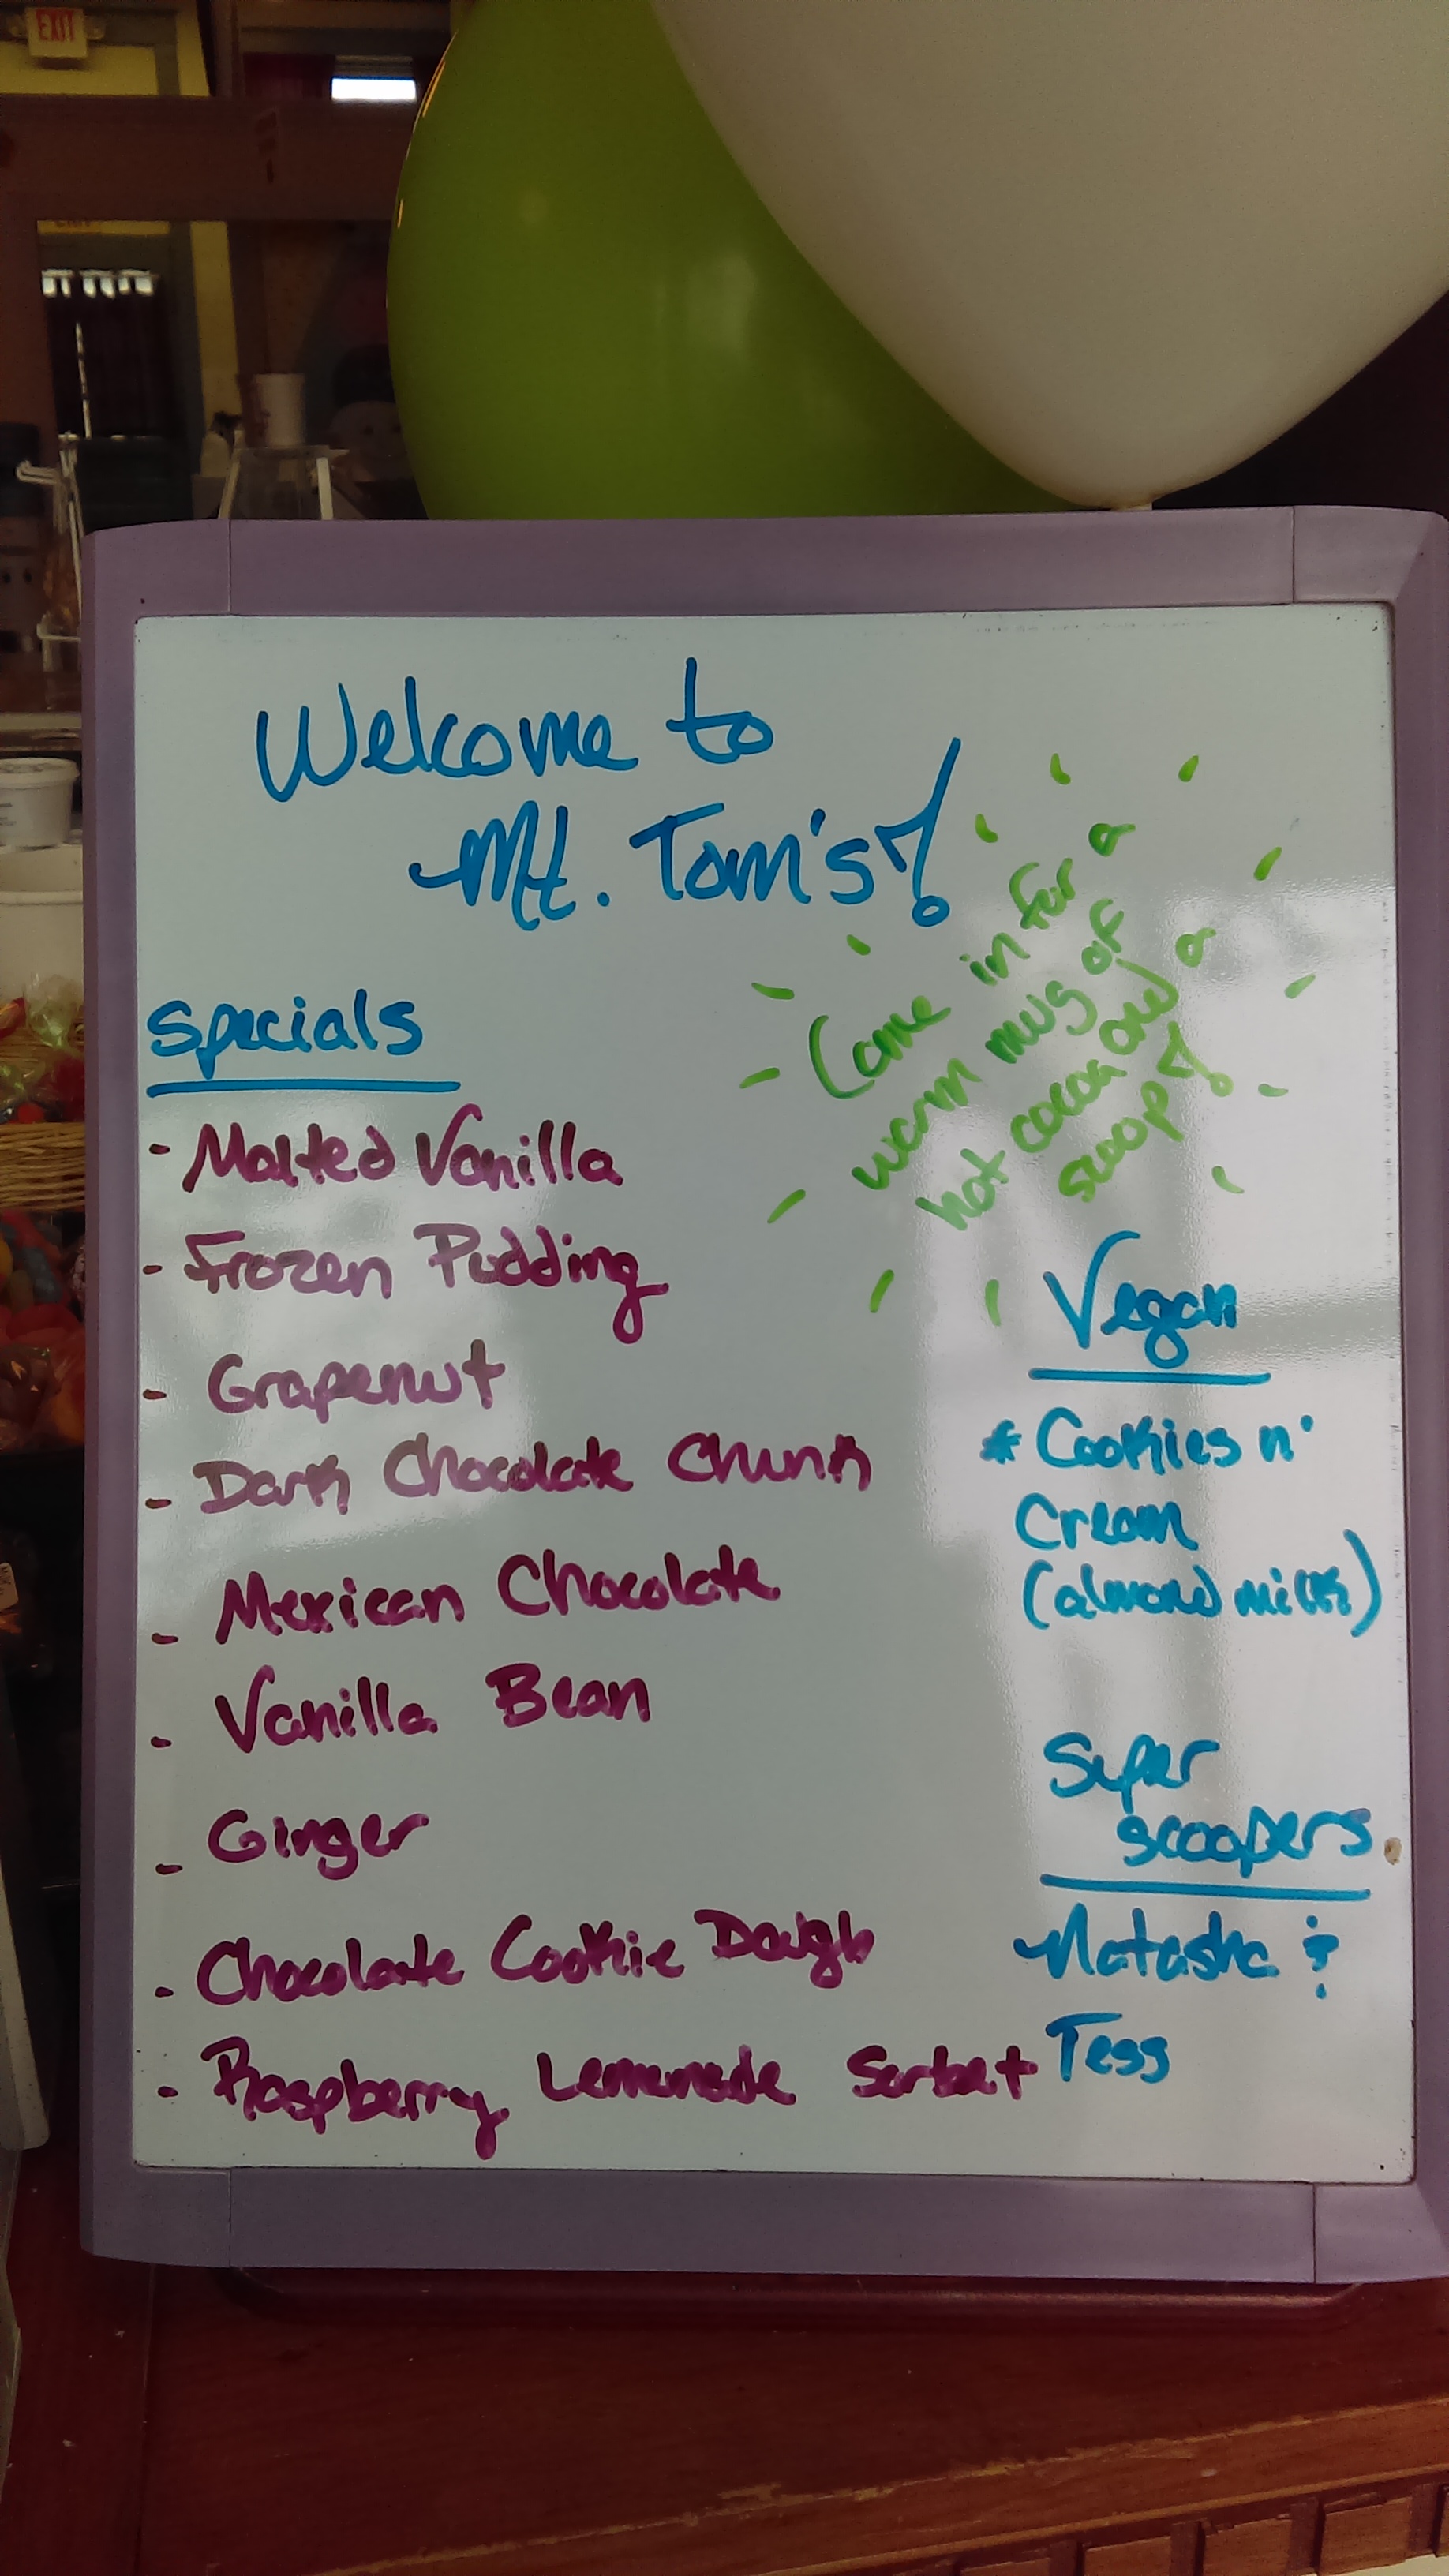 EXIT
Welcome to
Mt. Tom's!
Come in for a
warm mug of
hot cocoa and a
scoop!
Specials
- Malted Vanilla
- Frozen Pudding
- Grapenut
- Dark Chocolate Chunk
- Mexican Chocolate
- Vanilla Bean
- Ginger
- Chocolate Cookie Dough
- Raspberry Lemonade Sorbet
Vegan
* Cookies n'
Cream
(almond milk)
Super
scoopers
Natasha &
Tess